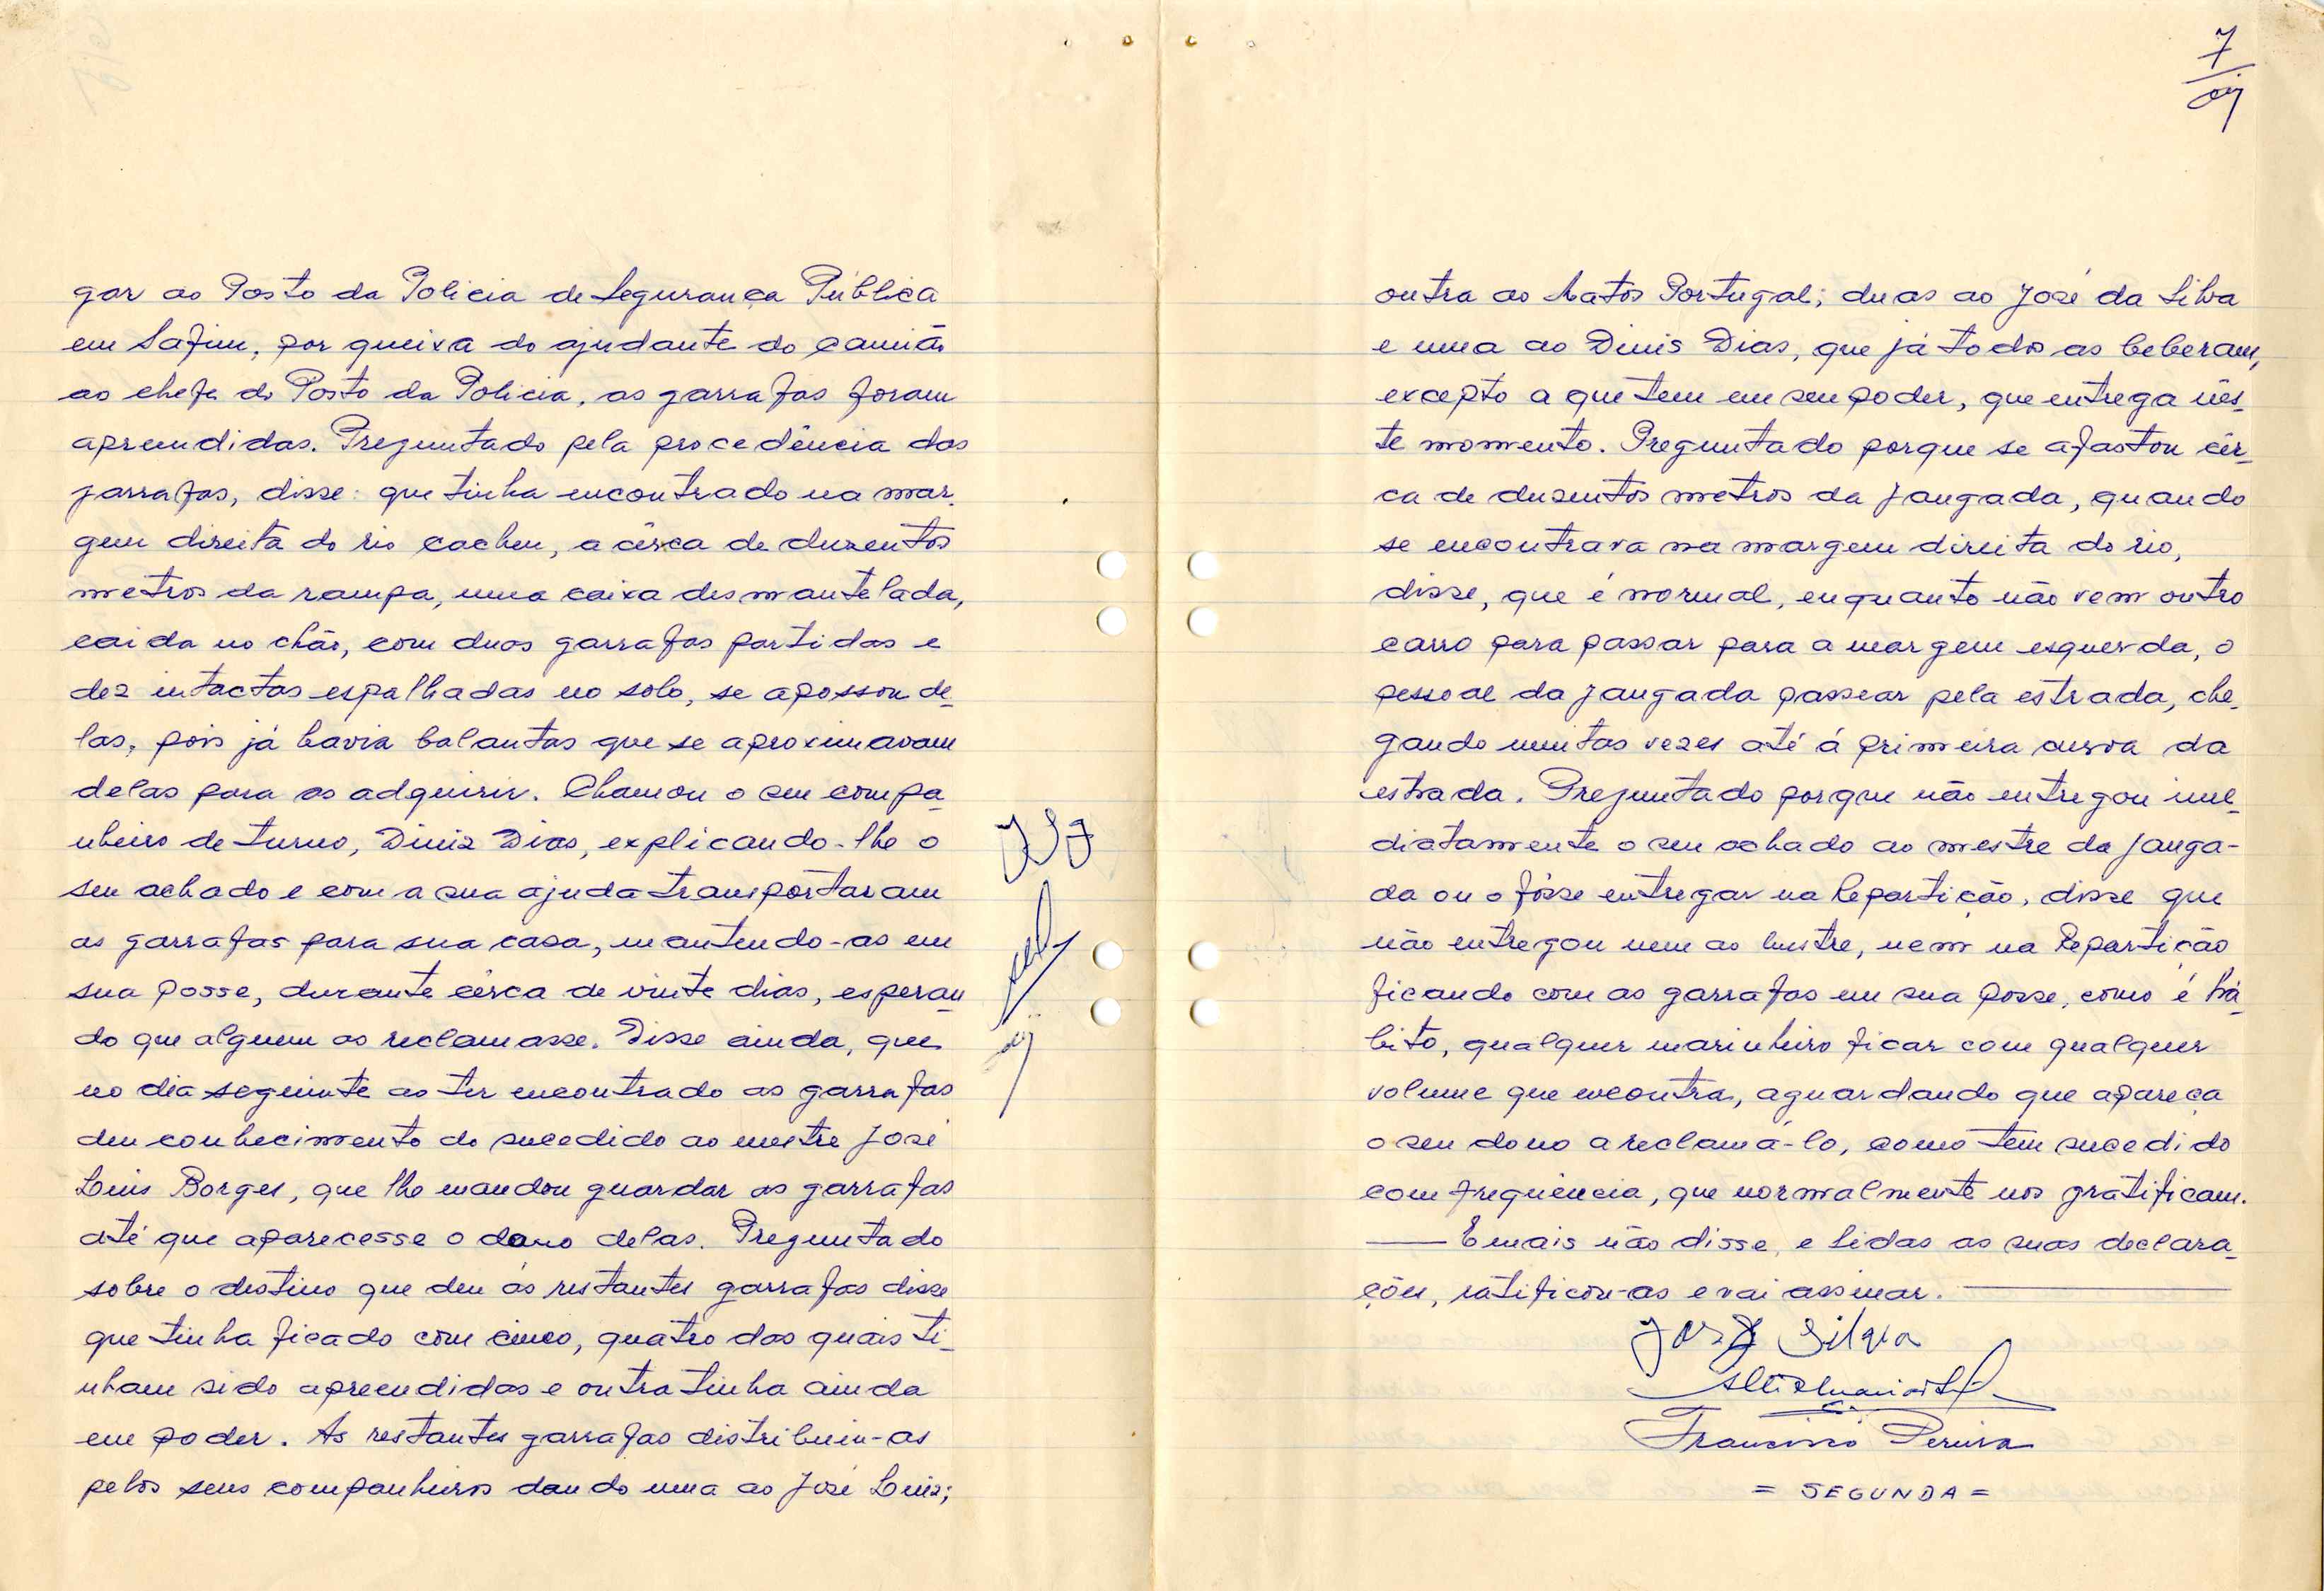 gar ao Posto da Policia de Segurança Pública
em Safim, por queixa do ajudante do camião
ao chefe do Posto da Policia, as garrafas foram
apreendidas. Preguntado pela procedência das
garrafas, disse: que tinha encontrado na mar-
gem direita do rio Cacheu, a cêrca de duzentos
metros da rampa, uma caixa desmantelada,
caida no chão, com duas garrafas partidas e
dez intactas espalhadas no solo, se apossou de-
las, pois já havia balantas que se aproximavam
delas para as adquirir. Chamou o seu compa-
nheiro de turno, Diniz Dias, explicando-lhe o
seu achado e com a sua ajuda transportaram
as garrafas para sua casa, mantendo-as em
sua posse, durante cêrca de vinte dias, esperan-
do que alguem as reclamasse. Disse ainda, que
no dia seguinte ao ter encontrado as garrafas
deu conhecimento do sucedido ao mestre José
Luis Borges, que lhe mandou guardar as garrafas
até que aparecesse o dono delas. Preguntado
sobre o destino que deu ás restantes garrafas disse
que tinha ficado com cinco, quatro das quais ti-
nham sido apreendidas e outra tinha ainda
em poder. As restantes garrafas distribuiu-as
pelos seus companheiros dando uma ao José Luiz;
7
outra ao Matos Portugal; duas ao José da Silva
e uma ao Dinis Dias, que já todos as beberam,
excepto a que tem em seu poder, que entrega nês-
te momento. Preguntado porque se afastou cêr-
ca de duzentos metros da jangada, quando
se encontrava na margem direita do rio,
disse, que é normal, enquanto não vem outro
carro para passar para a margem esquerda, o
pessoal da jangada passear pela estrada, che-
gando muitas vezes até á primeira curva da
estrada. Preguntado porque não entregou ime-
diatamente o seu achado ao mestre da janga-
da ou o fôsse entregar na Repartição, disse que
não entregou nem ao mestre, nem na Repartição
ficando com as garrafas em sua posse, como é há-
bito, qualquer marinheiro ficar com qualquer
volume que encontra, aguardando que apareça
o seu dono a reclamá-lo, como tem sucedido
com frequência, que normalmente nos gratificam.
— E mais não disse, e lidas as suas declara-
ções, ratificou-as e vai assinar. —
José Silva
Francisco Pereira
= SEGUNDA =